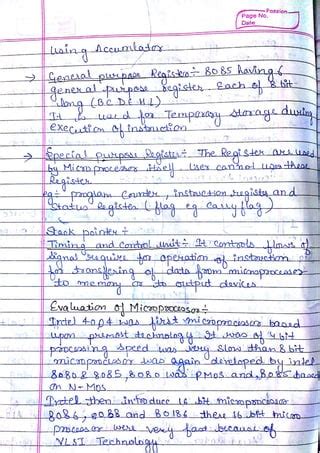 Passion
Page No.
Date
Using Accumlator
→ General purpose Register ÷ 8085 having 6
general purpose register. Each of 8 bit
long (B C D E H L)
It is used for Temporary storage during
execution of instruction
→ Special purpose Register ÷ The Register are used
by Microprocessor itself. User cannot use these
Register
eg ÷ program counter, instruction registy and
Status Register (flag eg Carry flag)
Stack pointer ÷
Timing and control unit ÷ It controls flow of
signal require for operation of instruction
for transfering of data from microprocesser
to memory or to output devices
Evaluation of Microprocessor ÷
Intel 4004 was first microprocessor based
upon technology. It was of 4 bit
processing speed was very slow than 8 bit
microprocessor was again developed by intel
8080 & 8085, 8080 was PMOS and, 8085 based
on N-Mos
Intel then introduce 16 bit microprocessor
8086, 8088 and 80186 these 16 bit micro
processor were very fast because of
VLSI Technology